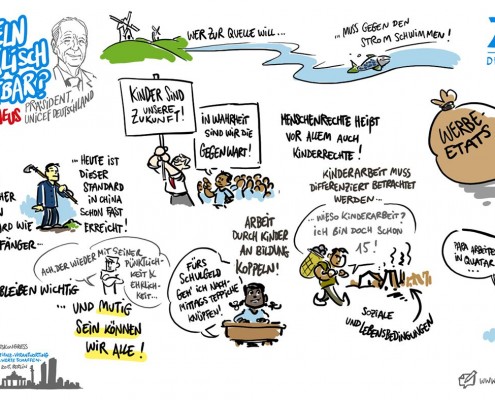 ELN
LISCH
BAR?
AEUS
PRÄSIDENT,
UNICEF DEUTSCHLAND
WER ZUR QUELLE WILL...
...MUSS GEGEN DEN
STROM SCHWIMMEN!
KINDER SIND
UNSERE
ZUKUNFT!
IN WAHRHEIT
SIND WIR DIE
GEGENWART!
MENSCHENRECHTE HEIßT
VOR ALLEM AUCH
KINDERRECHTE!
WERBE-
ETATS
... HEUTE IST
DIESER
STANDARD
IN CHINA
SCHON FAST
ERREICHT!
HER
ARD WIE
FÄNGER...
KINDERARBEIT MUSS
DIFFERENZIERT BETRACHTET
WERDEN...
...WIESO KINDERARBEIT?
ICH BIN DOCH SCHON
15!
ARBEIT
DURCH KINDER
AN BILDUNG
KOPPELN!
PAPA ARBEITE
IN QUATAR
ACH, DER WIEDER MIT SEINER
PÜNKTLICH-
KEIT &
EHRLICH-
KEIT...
BLEIBEN WICHTIG
...UND MUTIG
SEIN KÖNNEN
WIR ALLE!
FÜRS
SCHULGELD
GEH ICH NACH-
MITTAGS TEPPICHE
KNÜPFEN!
SOZIALE
UND LEBENSBEDINGUNGEN
SKONGRESS
2015, BERLIN
WWW.